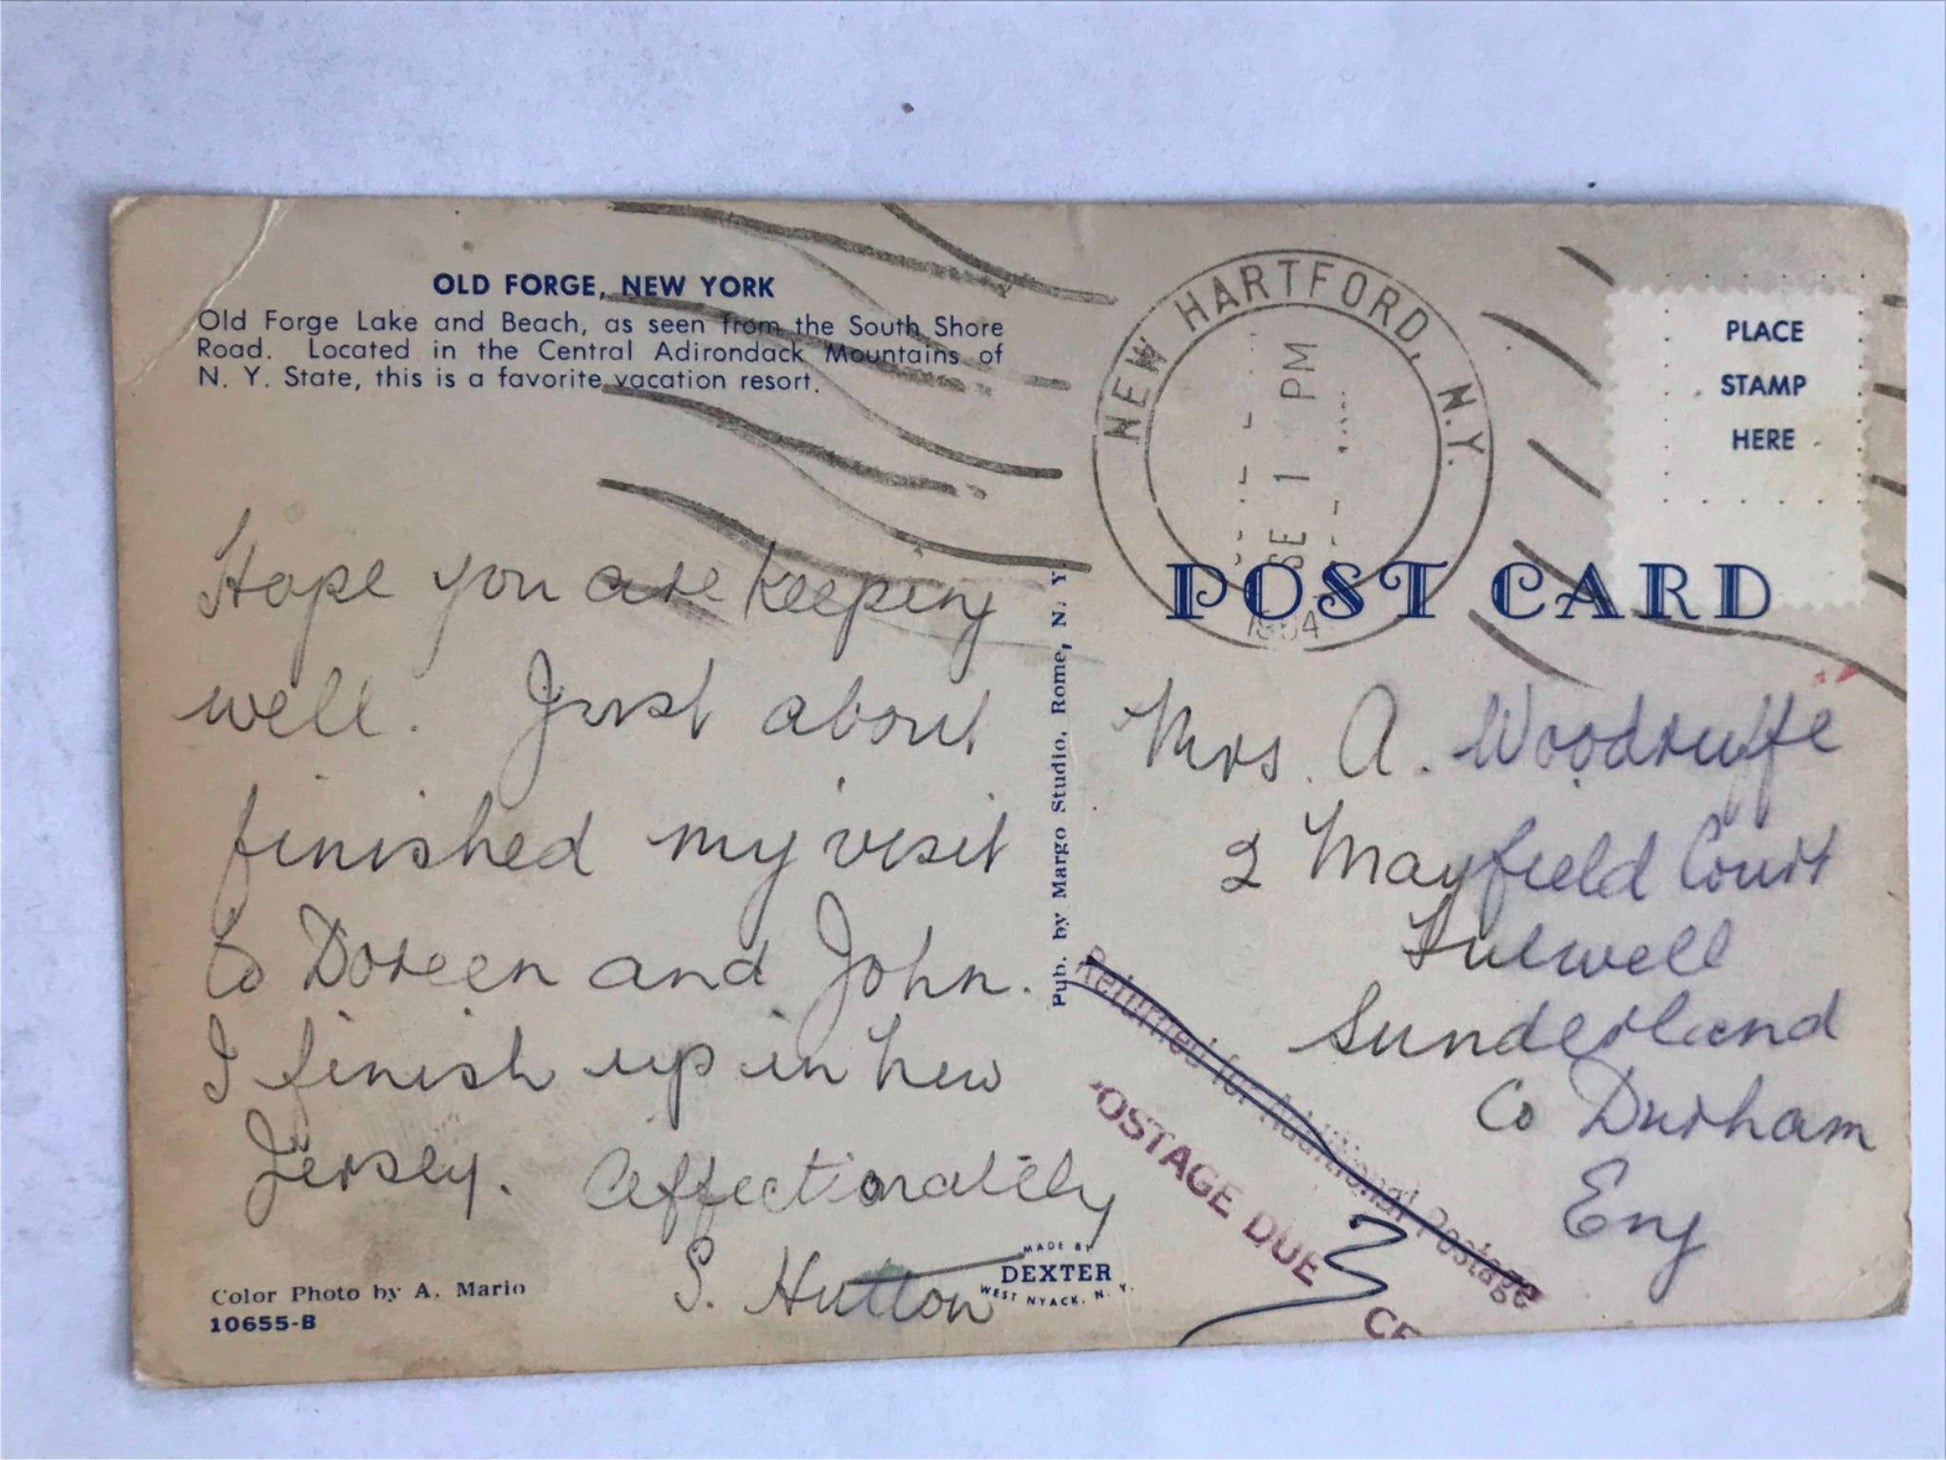 OLD FORGE, NEW YORK
Old Forge Lake and Beach, as seen from the South Shore
Road. Located in the Central Adirondack Mountains of
N. Y. State, this is a favorite vacation resort.
Hope you are keeping
well. Just about
finished my visit
to Doreen and John.
I finish up in New
Jersey. Affectionately
S. Hutton
Color Photo by A. Mario
10655-B
MADE BY
DEXTER
WEST NYACK, N. Y.
Pub. by Margo Studio, Rome, N. Y.
NEW HARTFORD, N.Y.
SE 1 PM
PLACE
STAMP
HERE
POST CARD
Mrs. A. Woodruffe
2 Mayfield Court
Fulwell
Sunderland
Co Durham
Eng
Returned for Additional Postage
POSTAGE DUE 3 CE